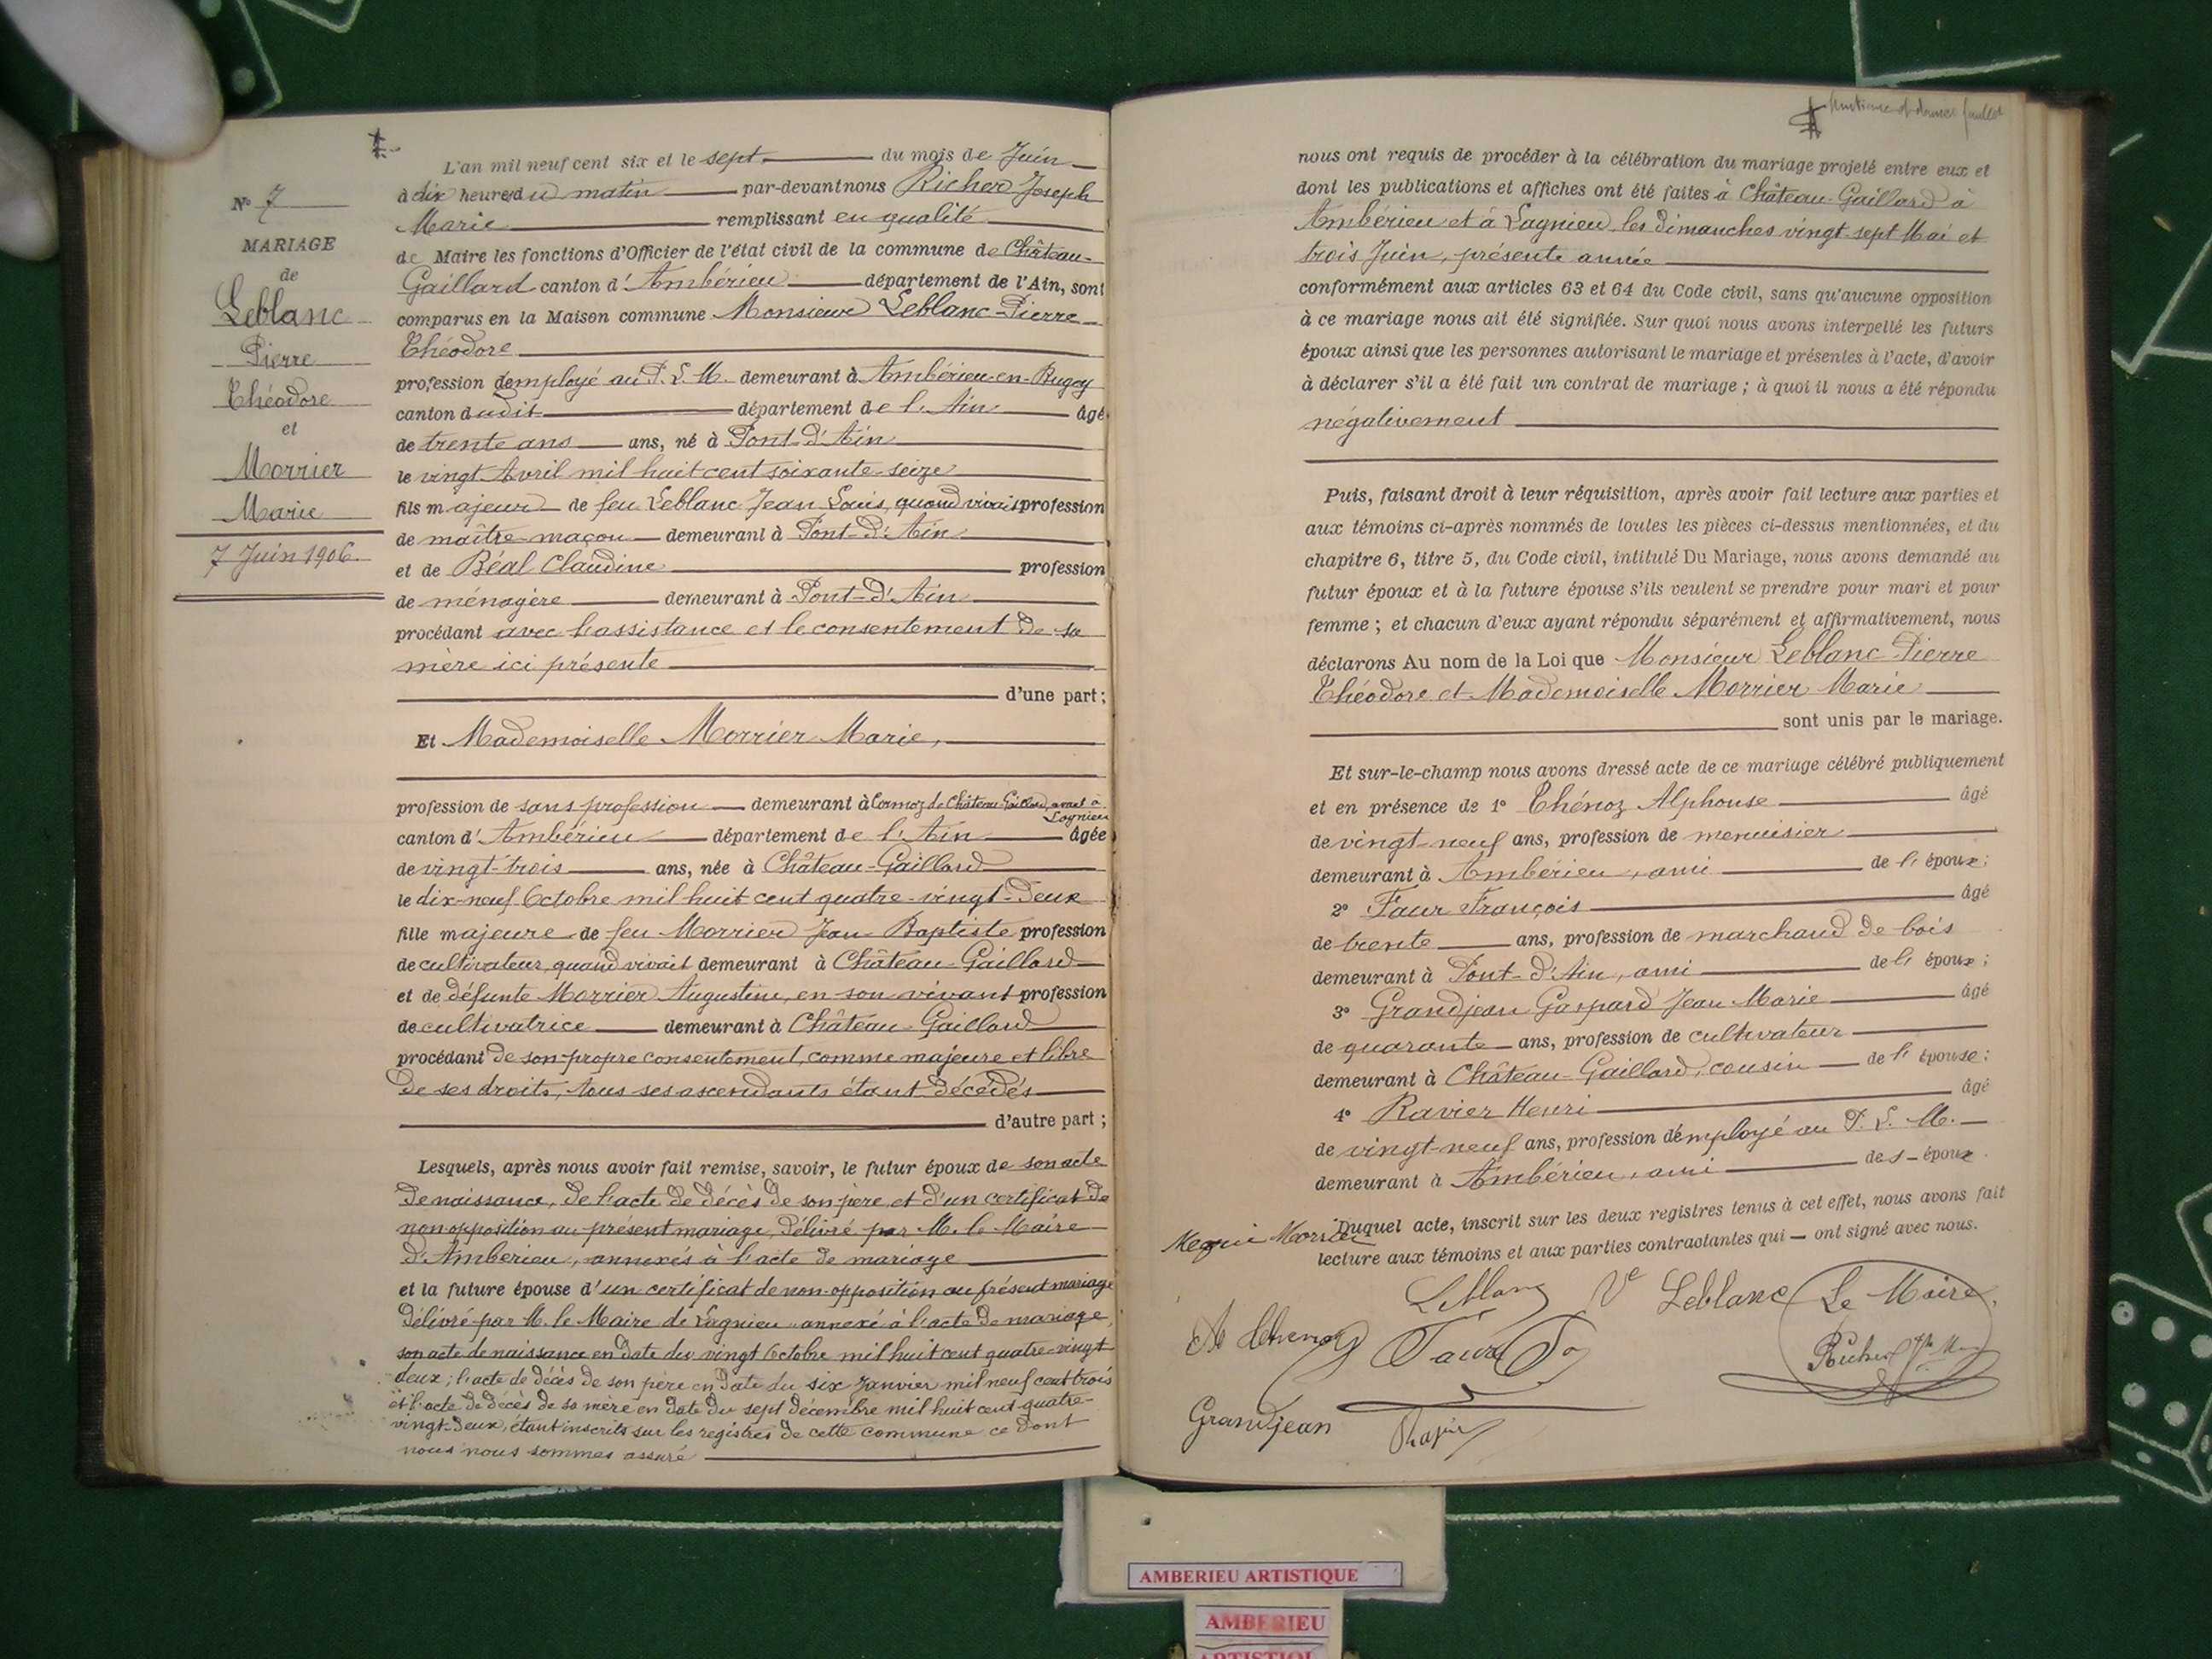 N° 7
MARIAGE
de
Leblanc
Pierre
Théodore
et
Morrier
Marie
7 Juin 1906.
L'an mil neuf cent six et le sept du mois de Juin
à dix heures du matin par-devant nous Richer Joseph
Marie remplissant en qualité
de Maire les fonctions d'Officier de l'état civil de la commune de Château-
Gaillard canton d'Ambérieu département de l'Ain, sont
comparus en la Maison commune Monsieur Leblanc Pierre
Théodore
profession d'employé au P. L. M. demeurant à Ambérieu-en-Bugey
canton dudit département de l'Ain âgé
de trente ans ans, né à Pont-d'Ain
le vingt Avril mil huit cent soixante-seize
fils majeur de feu Leblanc Jean Louis, quand vivait profession
de maître-maçon demeurant à Pont-d'Ain
et de Béal Claudine profession
de ménagère demeurant à Pont-d'Ain
procédant avec l'assistance et le consentement de sa
mère ici présente
d'une part ;
Et Mademoiselle Morrier Marie,
profession de sans profession demeurant à Cormoz de Château-Gaillard, avant à
Lagnieu
canton d'Ambérieu département de l'Ain âgée
de vingt-trois ans, née à Château-Gaillard
le dix-neuf Octobre mil huit cent quatre-vingt-deux
fille majeure de feu Morrier Jean Baptiste profession
de cultivateur quand vivait demeurant à Château-Gaillard
et de défunte Morrier Augustine, en son vivant profession
de cultivatrice demeurant à Château-Gaillard
procédant de son propre consentement, comme majeure et libre
de ses droits, tous ses ascendants étant décédés
d'autre part ;
Lesquels, après nous avoir fait remise, savoir, le futur époux de son acte
de naissance, de l'acte de décès de son père et d'un certificat de
non opposition au présent mariage, délivré par M. le Maire
d'Ambérieu, annexés à l'acte de mariage
et la future épouse d'un certificat de non-opposition au présent mariage
délivré par M. le Maire de Lagnieu annexé à l'acte de mariage,
son acte de naissance en date du vingt Octobre mil huit cent quatre-vingt
deux ; l'acte de décès de son père en date du six Janvier mil neuf cent trois
et l'acte de décès de sa mère en date du sept décembre mil huit cent quatre-
vingt-deux, étant inscrits sur les registres de cette commune ce dont
nous nous sommes assuré
feuillet
nous ont requis de procéder à la célébration du mariage projeté entre eux et
dont les publications et affiches ont été faites à Château-Gaillard à
Ambérieu et à Lagnieu les dimanches vingt-sept Mai et
trois Juin, présente année
conformément aux articles 63 et 64 du Code civil, sans qu'aucune opposition
à ce mariage nous ait été signifiée. Sur quoi nous avons interpellé les futurs
époux ainsi que les personnes autorisant le mariage et présentes à l'acte, d'avoir
à déclarer s'il a été fait un contrat de mariage ; à quoi il nous a été répondu
négativement
Puis, faisant droit à leur réquisition, après avoir fait lecture aux parties et
aux témoins ci-après nommés de toutes les pièces ci-dessus mentionnées, et du
chapitre 6, titre 5, du Code civil, intitulé Du Mariage, nous avons demandé au
futur époux et à la future épouse s'ils veulent se prendre pour mari et pour
femme ; et chacun d'eux ayant répondu séparément et affirmativement, nous
déclarons Au nom de la Loi que Monsieur Leblanc Pierre
Théodore et Mademoiselle Morrier Marie
sont unis par le mariage.
Et sur-le-champ nous avons dressé acte de ce mariage célébré publiquement
et en présence de 1° Thénoz Alphonse âgé
de vingt-neuf ans, profession de menuisier
demeurant à Ambérieu, ami de l'époux ;
2° Faur François âgé
de trente ans, profession de marchand de bois
demeurant à Pont-d'Ain, ami de l'époux ;
3° Grandjean Gaspard Jean Marie âgé
de quarante ans, profession de cultivateur
demeurant à Château-Gaillard, cousin de l'épouse ;
4° Ravier Henri âgé
de vingt-neuf ans, profession d'employé au P. L. M.
demeurant à Ambérieu, ami des époux.
Duquel acte, inscrit sur les deux registres tenus à cet effet, nous avons fait
lecture aux témoins et aux parties contractantes qui ont signé avec nous.
Morrier
Leblanc Ve Leblanc Le Maire,
A Thenoz Faur Richer
Grandjean Ravier
AMBERIEU ARTISTIQUE
AMBERIEU